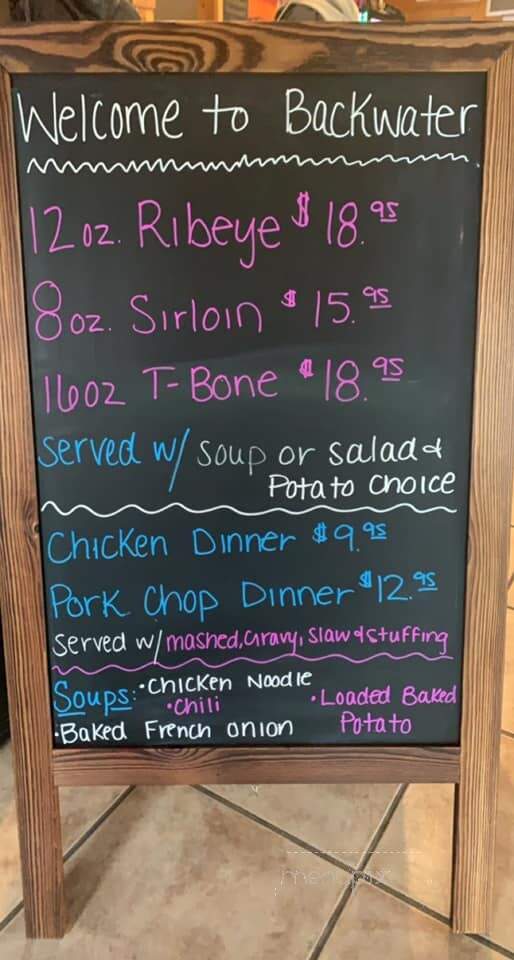 Welcome to Backwater
12 oz. Ribeye $18.95
8 oz. Sirloin $15.95
16 oz T-Bone $18.95
Served w/ soup or salad &
Potato Choice
Chicken Dinner $9.95
Pork Chop Dinner $12.95
Served w/ mashed, Gravy, Slaw & stuffing
Soups: • Chicken Noodle
• Chili
• Loaded Baked Potato
• Baked French onion
menupix